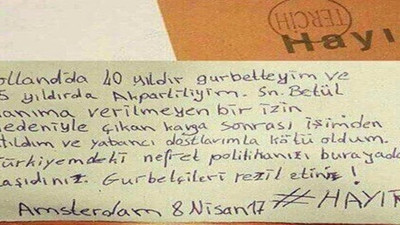 TERCİH
Hayı
ollanda'da 40 yıldır gurbetteyim ve
5 yıldırda Akpartiliyim. Sn. Betül
anıma verilmeyen bir izin
edeniyle çıkan kavga sonrası işimden
tıldım ve yabancı dostlarımla kötü oldum.
ürkiyemdeki nefret politikanızı burayada
aşıdınız. Gurbetçileri rezil ettiniz!
Amsterdam 8 Nisan 17 #HAYIR